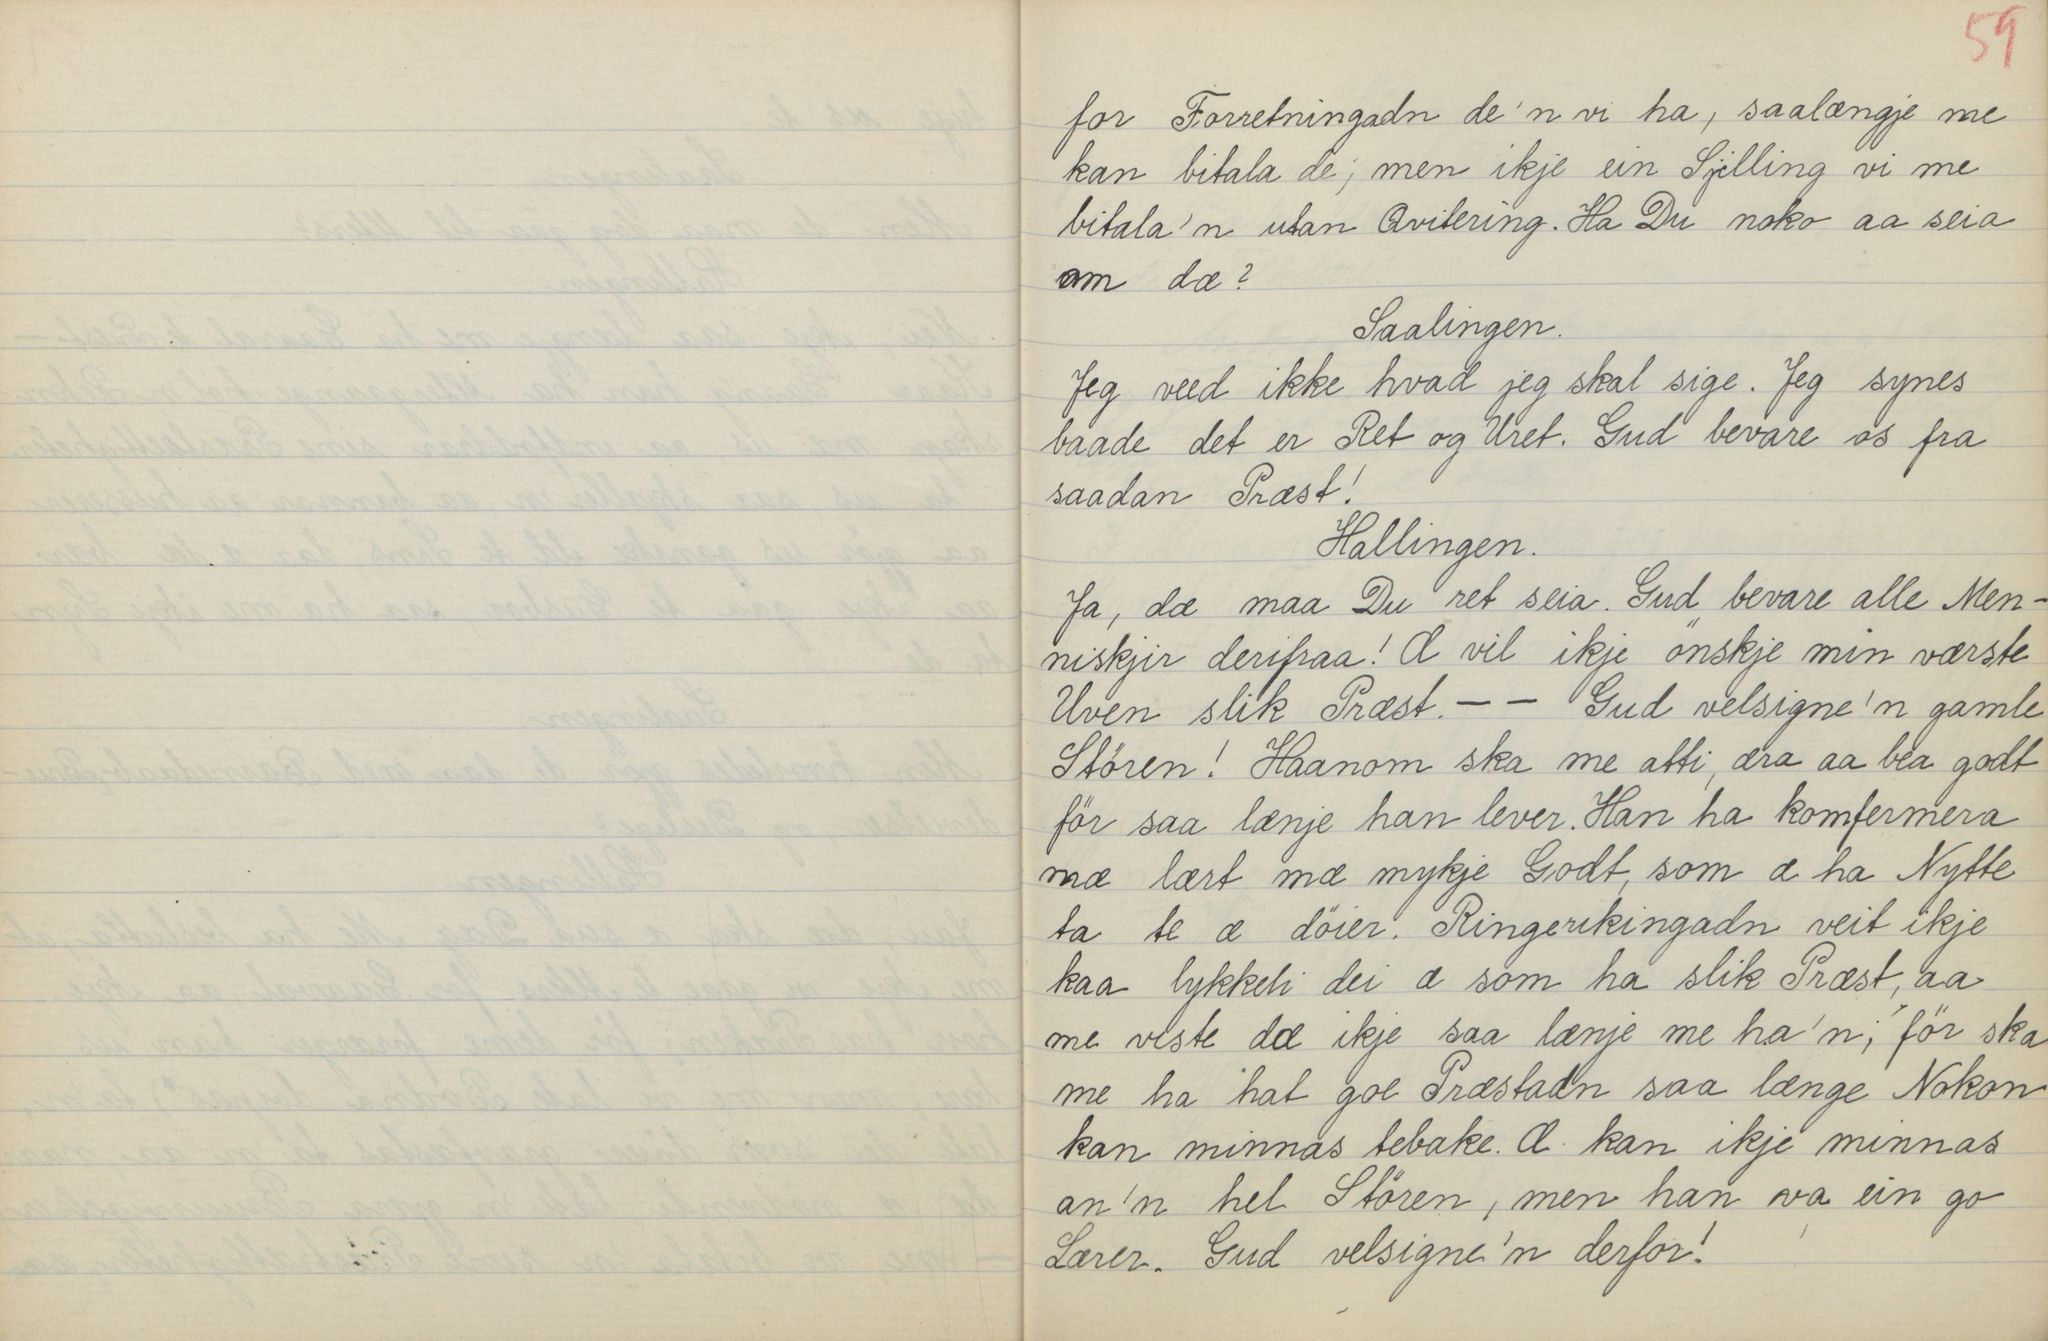 59
for Forretningadn de'n vi ha, saalængje me
kan bitala de; men ikje ein Sjilling vi me
bitala'n utan Qvitering. Ha Du noko aa seia
om dæ?
Saalingen.
Jeg veed ikke hvad jeg skal sige. Jeg synes
baade det er Ret og Uret. Gud bevare os fra
saadan Præst!
Hallingen.
Ja, dæ maa Du ret seia. Gud bevare alle Men-
niskjir derifraa! Æ vil ikje önskje min værste
Uven slik Præst. — — Gud velsigne'n gamle
Stören! Haanom ska me atti, æra aa bea godt
för saa lænje han lever. Han ha komfermera
mæ lært mæ mykje Godt, som æ ha Nytte
ta te æ döier. Ringerikingadn veit ikje
kaa lykkeli dei æ som ha slik Præst, aa
me viste dæ ikje saa lænje me ha'n; för ska
me ha hat goe Præstadn saa længe Nokon
kan minnas tebake. Æ kan ikje minnas
an'n hel Stören, men han va ein go
Lærer. Gud velsigne'n derfor!